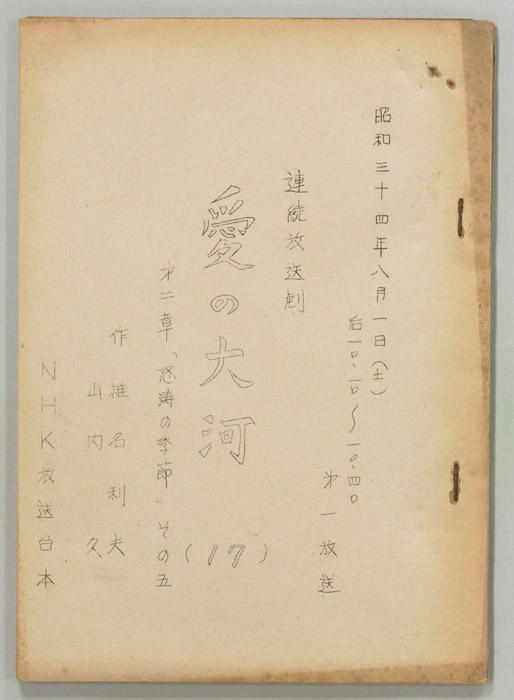 昭和三十四年八月一日(土)
后一〇.一〇〜一〇.四〇
第一放送
連続放送劇
愛の大河
(17)
第二章「怒涛の季節」その五
作 椎名利夫
山内久
NHK放送台本